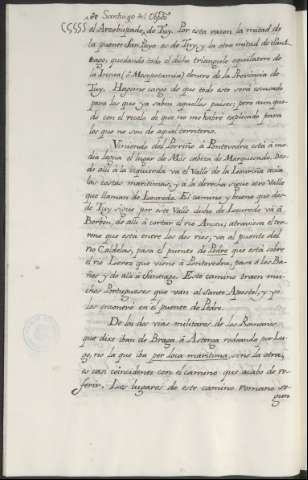 de Santiago del Obpdo
(§§§§) el Arzobispado, de Tuy. Por esta razon la mitad de
la puente San Payo es de Tuy, y la otra mitad de Sant-
iago, quedando todo el dicho triangulo equilatero de
la Lurial (ó Mesopotamia) dentro de la Provincia de
Tuy. Hagome cargo de que todo esto será escusado
para los que ya saben aquellos paises; pero aun que-
do con el recelo de que no me habre explicado para
los que no son de aquel territorio.
Viniendo del Porriño á Pontevedra está á me-
dia legua el lugar de Mos cabeza de Marquesado. Des-
de allí á la izquierda va el Valle de la Louriña acia
las costas maritimas, y á la derecha sigue otro Valle
que llaman de Loureda. El camino y bueno que des-
de Tuy sigue por este Valle dicho de Loureda vá á
Borben, de allí á cortar el rio atraviesa el ter-
reno que esta entre los dos rios; va al puente del
rio Caldelas, pasa el puente de Pedre que está sobre
el rio Lerez que viene á Pontevedra; pasa á los Ba-
ños y de allí á Santiago. Este camino traen mu-
chos Portugueses que van al Santo Apostol, y yo
los encontré en el puente de Pedre.
De las dos vias militares de los Romanos
que dixe iban de Braga á Astorga rodeando por Lu-
go, no la que iba per loca maritima, sino la otra,
es casi coincidente con el camino que acabo de re-
ferir. Los lugares de este camino Romano se-
gun